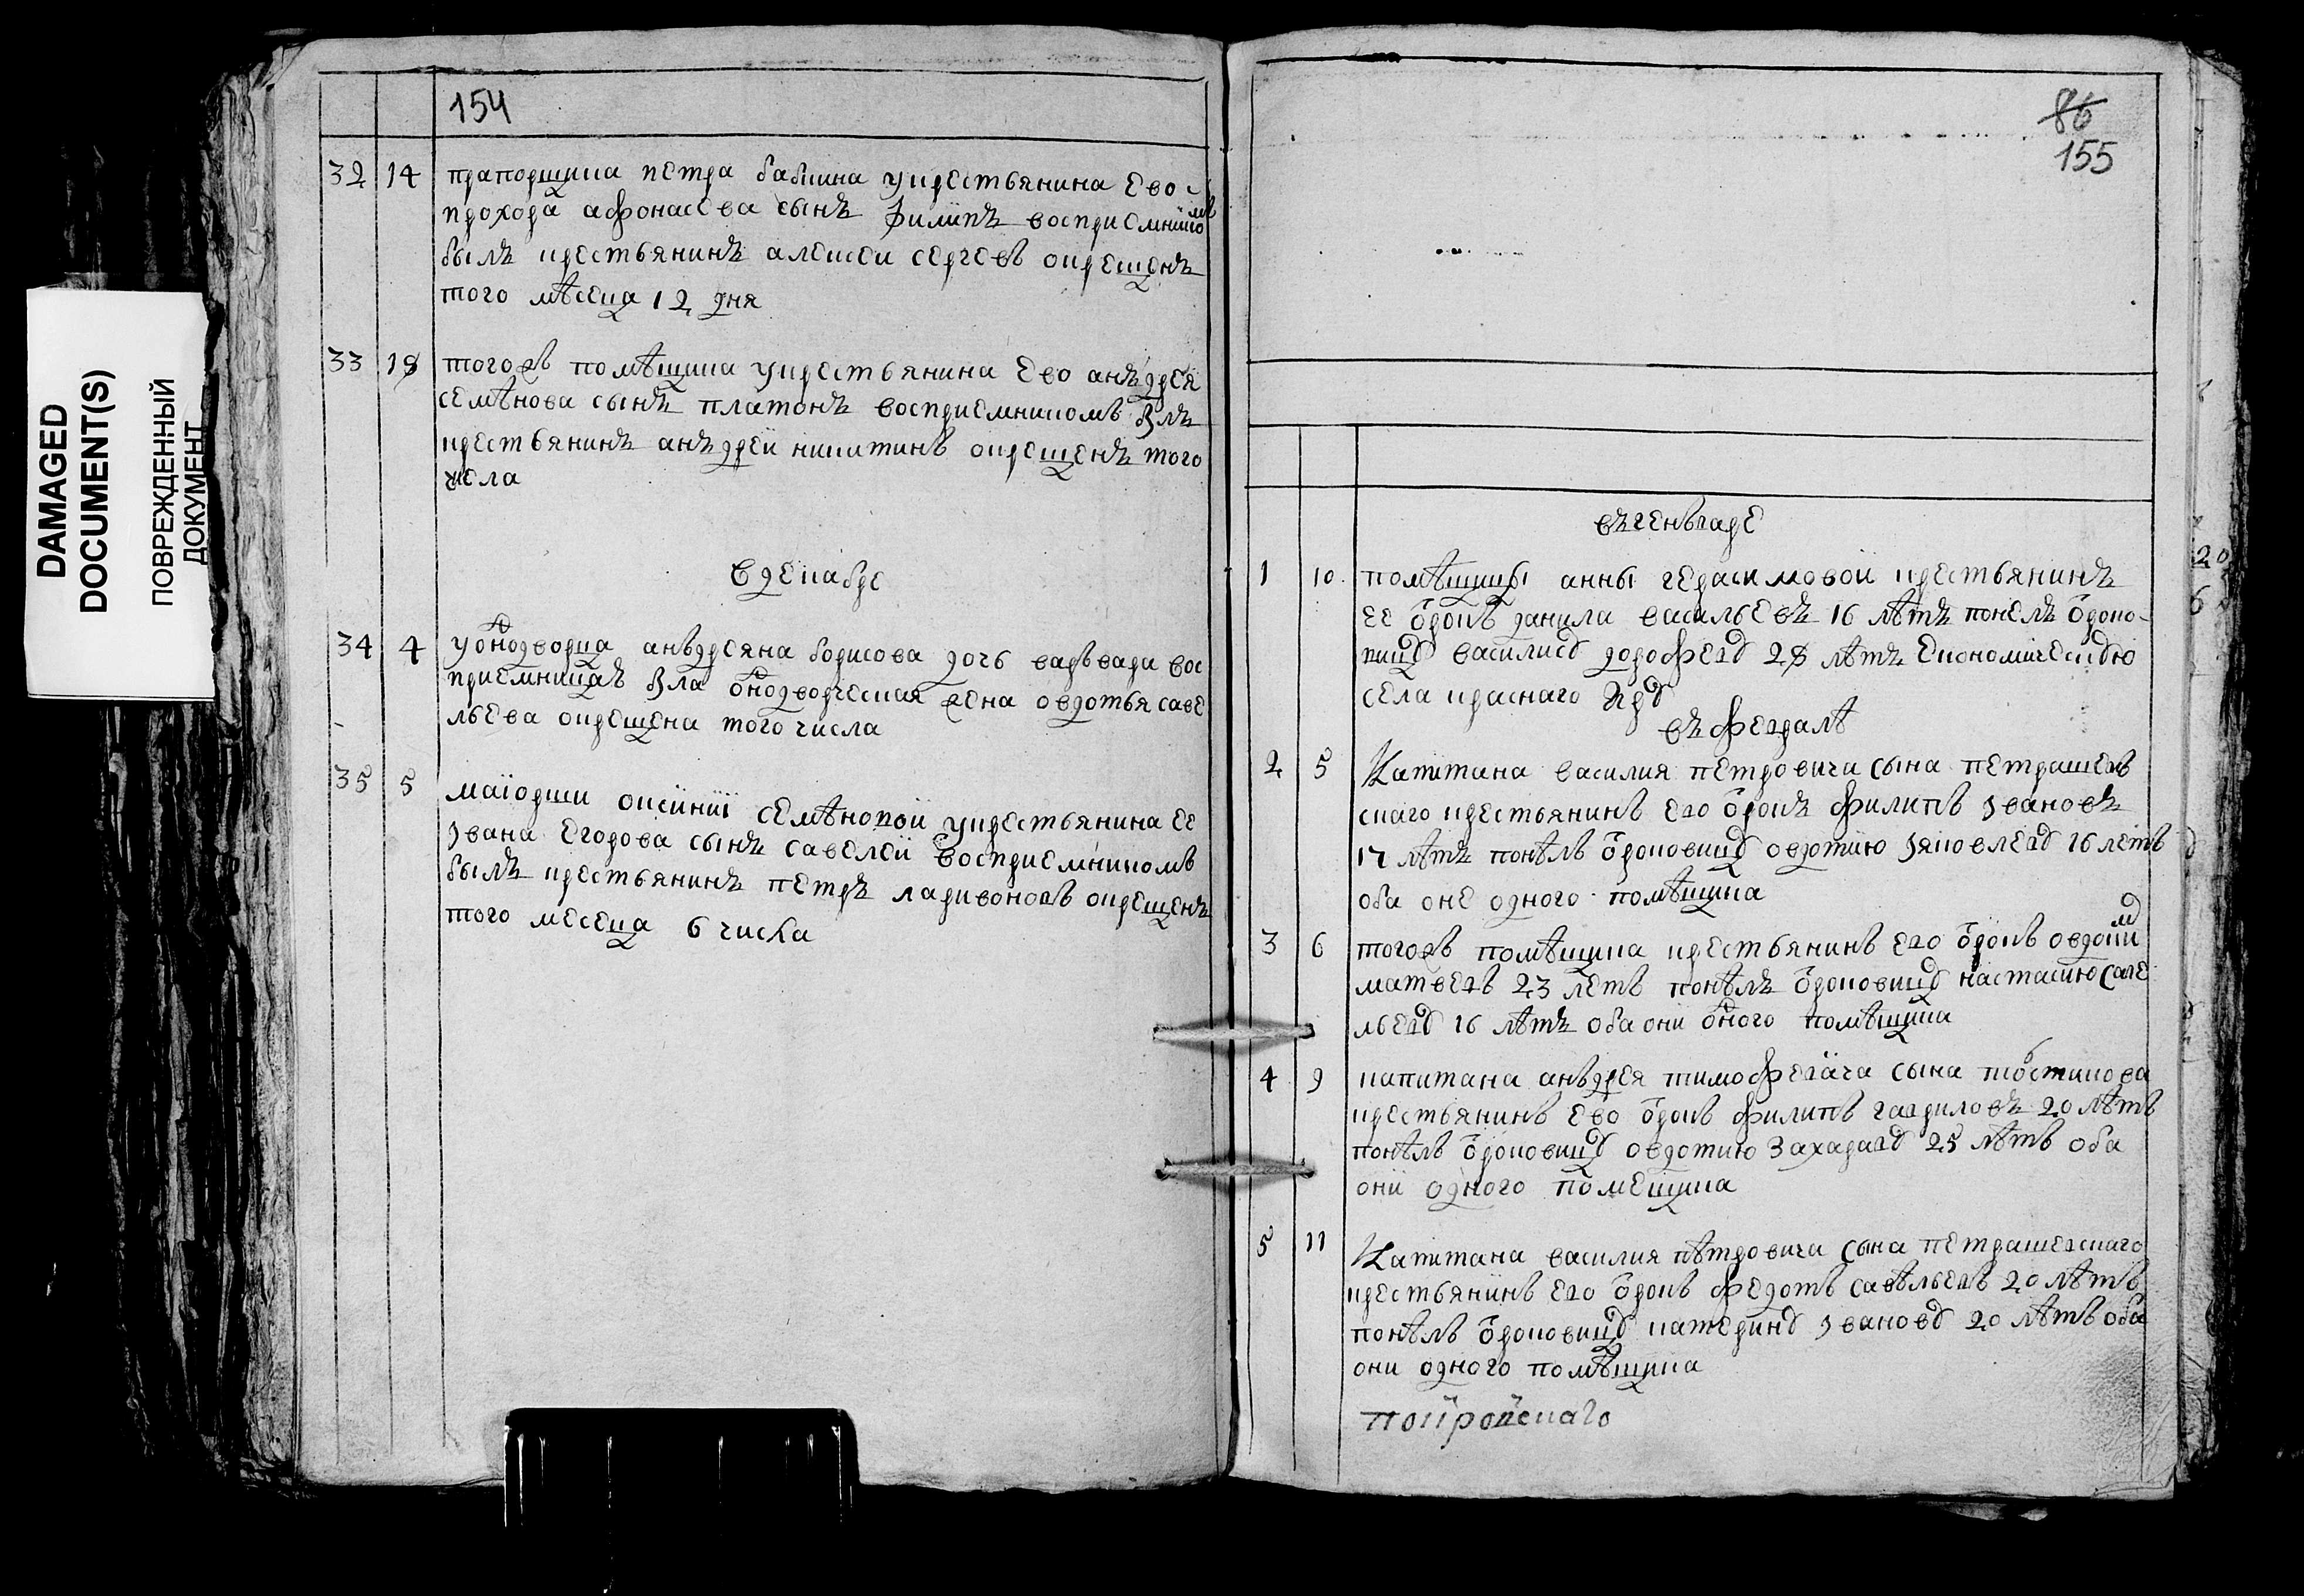 DAMAGED
DOCUMENT(S)
ПОВРЕЖДЕННЫЙ
ДОКУМЕНТ
154
32 14 прапорщика петра бабкина укрестьянина ево
прохора афонасева сынъ филипъ восприемникомъ
былъ крестьянинъ алексеи сергевъ окрещенъ
того мѣсеца 12 дня
33 18 тогожъ помѣщика укрестьянина ево анъдрея
семѣнова сынъ платонъ восприемникомъ былъ
крестьянинъ анъдреи никитинъ окрещенъ того
числа
в декабре
34 4 уоднодворца анъдреяна борисова дочь варъвара вос
приемницаѣ была однодворческая жена овдотья саве
льева окрещена того числа
35 5 маіорши оксинiи семѣновои укрестьянина ее
Iвана егорова сынъ савелеи восприемникомъ
былъ крестьянинъ петръ ларивоновъ окрещенъ
того месеца 6 числа
86
155
въ генъваре
1 10 помѣщицы анны герасимовои крестьянинъ
ее отрокъ данила васильевъ 16 лѣтъ понелъ отроко-
вицу василису дорофеву 28 лѣтъ економическую
села краснаго
въ февралѣ
2 5 Капитана василия петровича сына петрашев
скаго крестьянинъ его отрокъ филипъ Iвановъ
17 лѣтъ понѣлъ отроковицу овдотию Iяковлеву 16 летъ
оба оне одного помѣщика
3 6 тогожъ помѣщика крестьянинъ его отрокъ овдоким
матвевъ 23 летъ понѣлъ отроковицу настасию саве
льеву 16 лѣтъ оба они одного помѣщика
4 9 капитана анъдрея тимофевича сына
крестьянинъ ево отрокъ филипъ гавриловъ 20 лѣтъ
понѣлъ отроковицу овдотию Захараву 25 лѣтъ оба
они одного помещика
5 11 Капитана василия пѣтровича сына петрашевскаго
крестьянинъ его отрокъ федотъ савѣльевъ 20 лѣтъ
понѣлъ отроковицу катерину Iванову 20 лѣтъ оба
они одного помѣщика
покровскаго